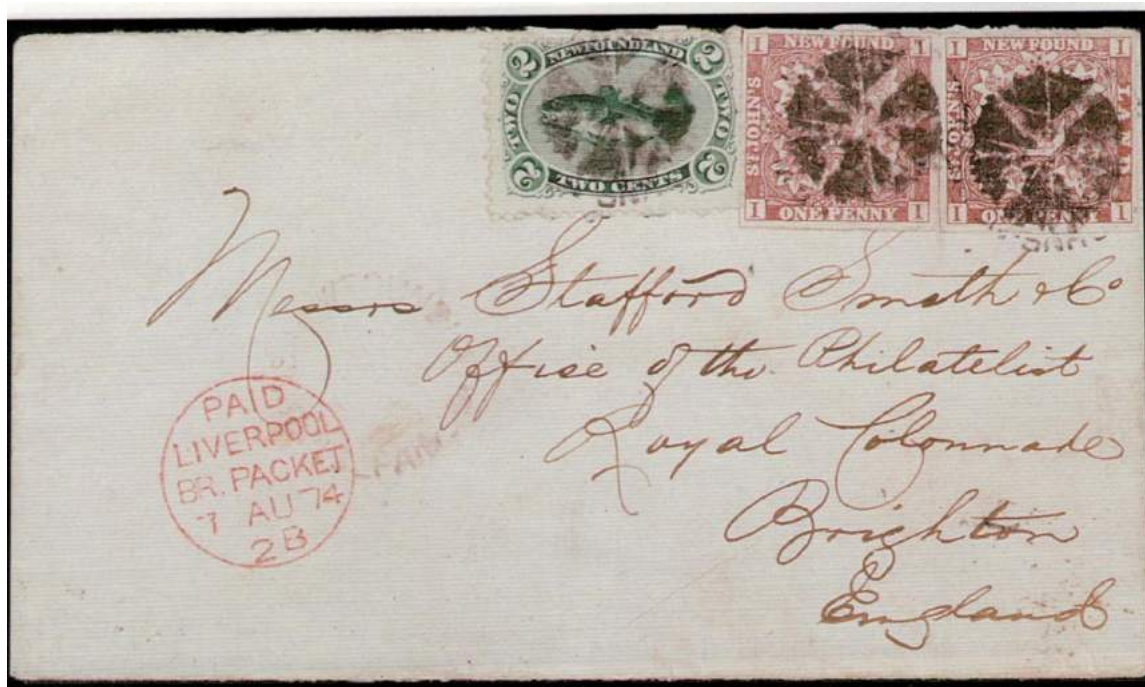 2 NEWFOUNDLAND 2
TWO TWO
2 TWO CENTS 2
1 NEWFOUND 1
ST JOHN'S
1 ONE PENNY 1
1 NEWFOUND 1
ST JOHN'S LAND
1 ONE PENNY 1
Messrs Stafford Smith & Co
Office of the Philatelist
Royal Colonnade
Brighton
England
PAID
LIVERPOOL
BR. PACKET
7 AU 74
2B